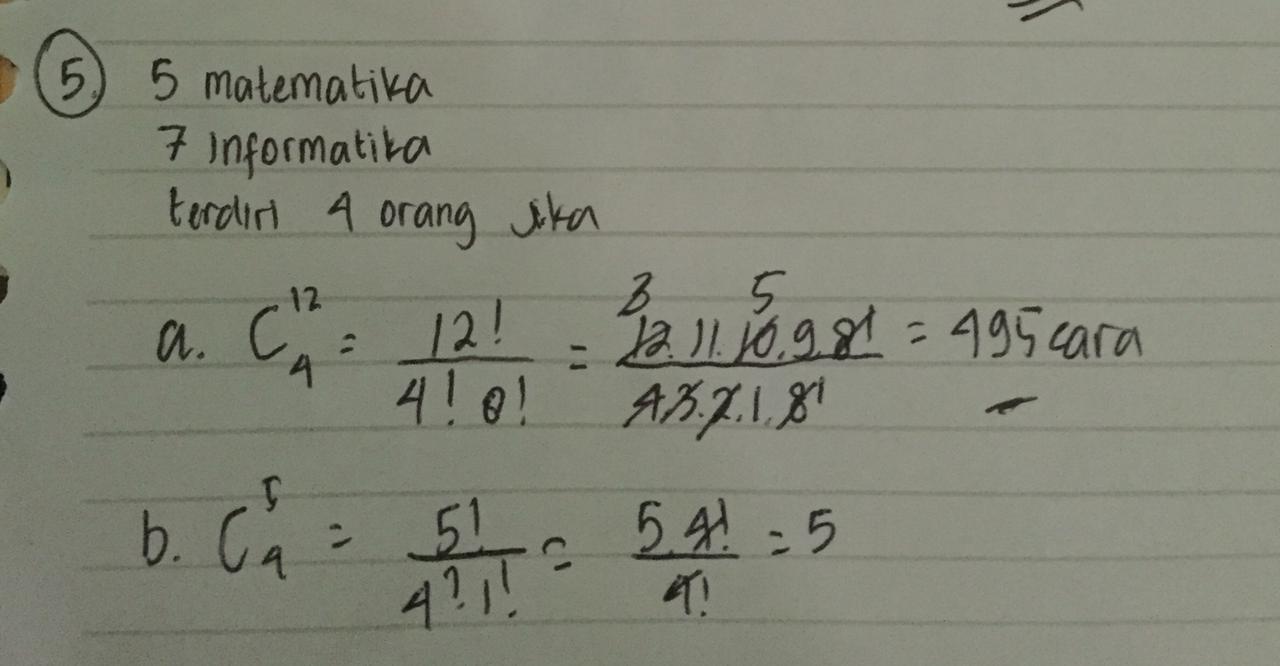 5. 5 matematika
7 Informatika
terdiri 4 orang jika
a. C¹²₄ = 12! / 4! 8! = 12.11.10.9.8! / 4.3.2.1.8! = 495 cara
3 5
b. C⁵₄ = 5! / 4! 1! = 5.4! / 4! = 5